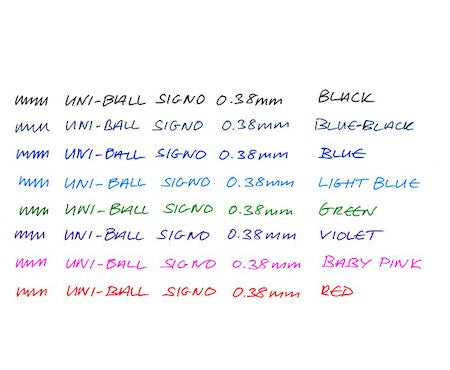 UNI-BALL SIGNO 0.38mm BLACK
UNI-BALL SIGNO 0.38mm BLUE-BLACK
UNI-BALL SIGNO 0.38mm BLUE
UNI-BALL SIGNO 0.38mm LIGHT BLUE
UNI-BALL SIGNO 0.38mm GREEN
UNI-BALL SIGNO 0.38mm VIOLET
UNI-BALL SIGNO 0.38mm BABY PINK
UNI-BALL SIGNO 0.38mm RED